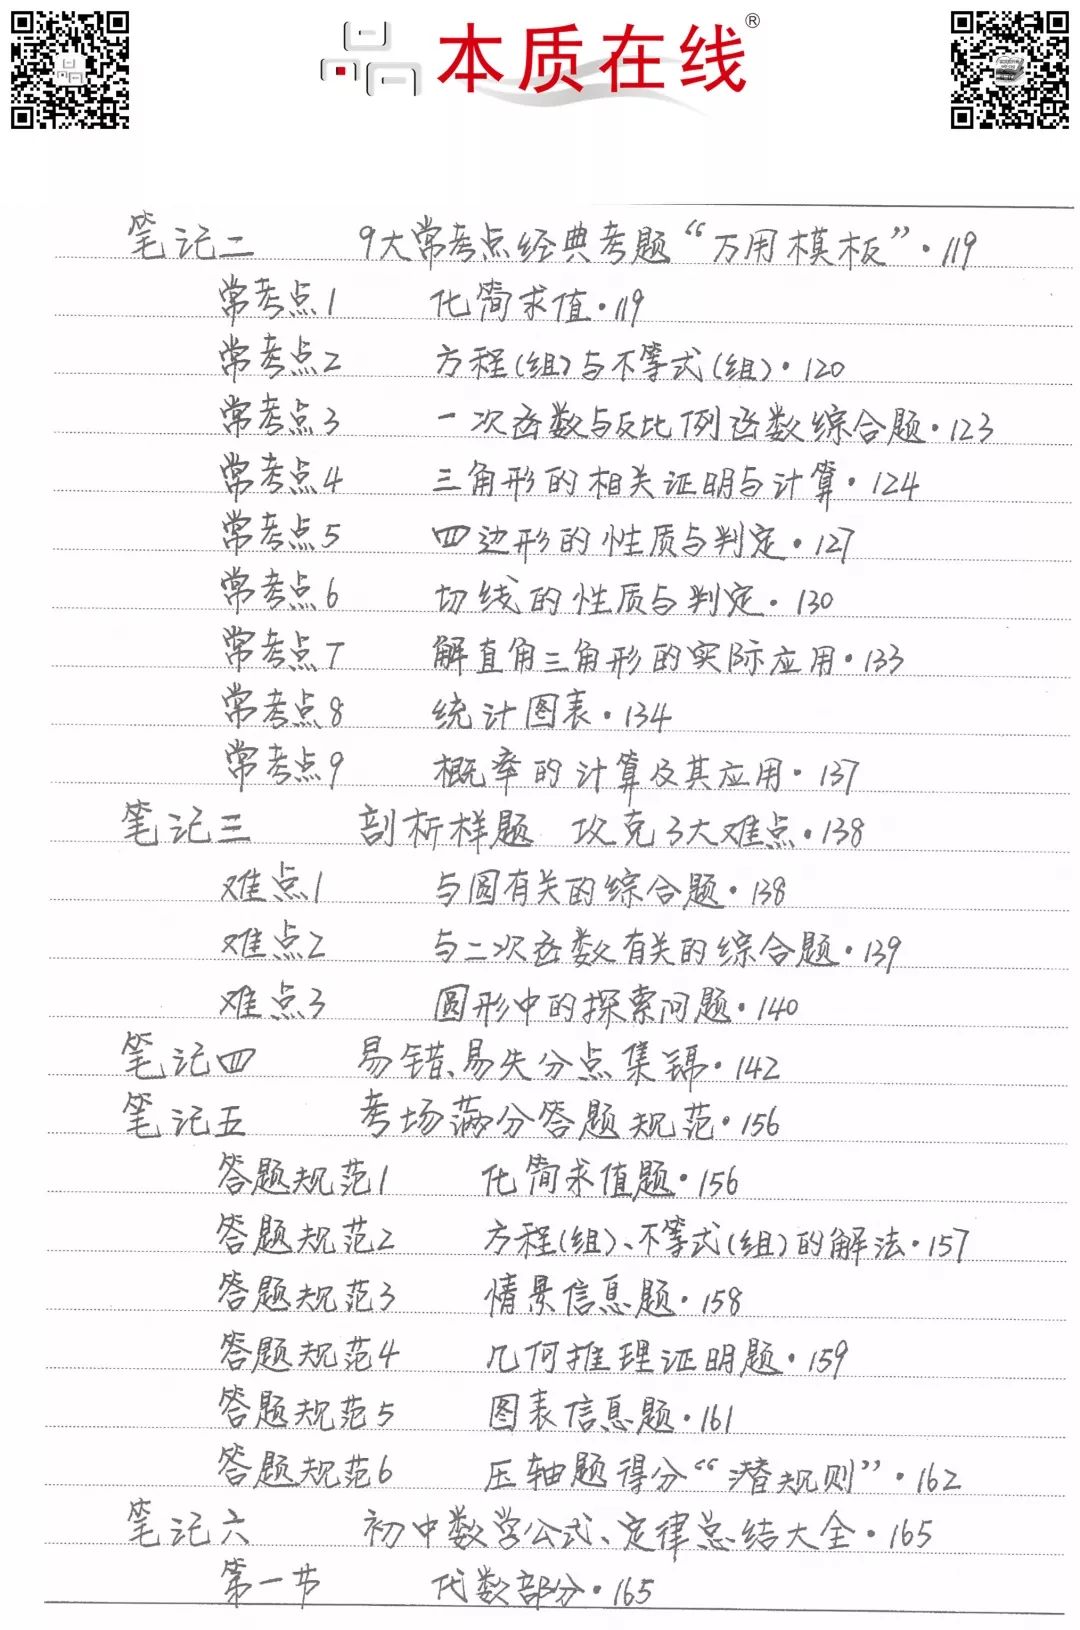 本质在线®
笔记二 9大常考点经典考题“万用模板”·119
常考点1 化简求值·119
常考点2 方程(组)与不等式(组)·120
常考点3 一次函数与反比例函数综合题·123
常考点4 三角形的相关证明与计算·124
常考点5 四边形的性质与判定·127
常考点6 切线的性质与判定·130
常考点7 解直角三角形的实际应用·133
常考点8 统计图表·134
常考点9 概率的计算及其应用·137
笔记三 剖析样题 攻克3大难点·138
难点1 与圆有关的综合题·138
难点2 与二次函数有关的综合题·139
难点3 图形中的探索问题·140
笔记四 易错、易失分点集锦·142
笔记五 考场满分答题规范·156
答题规范1 化简求值题·156
答题规范2 方程(组)、不等式(组)的解法·157
答题规范3 情景信息题·158
答题规范4 几何推理证明题·159
答题规范5 图表信息题·161
答题规范6 压轴题得分“潜规则”·162
笔记六 初中数学公式、定律总结大全·165
第一节 代数部分·165